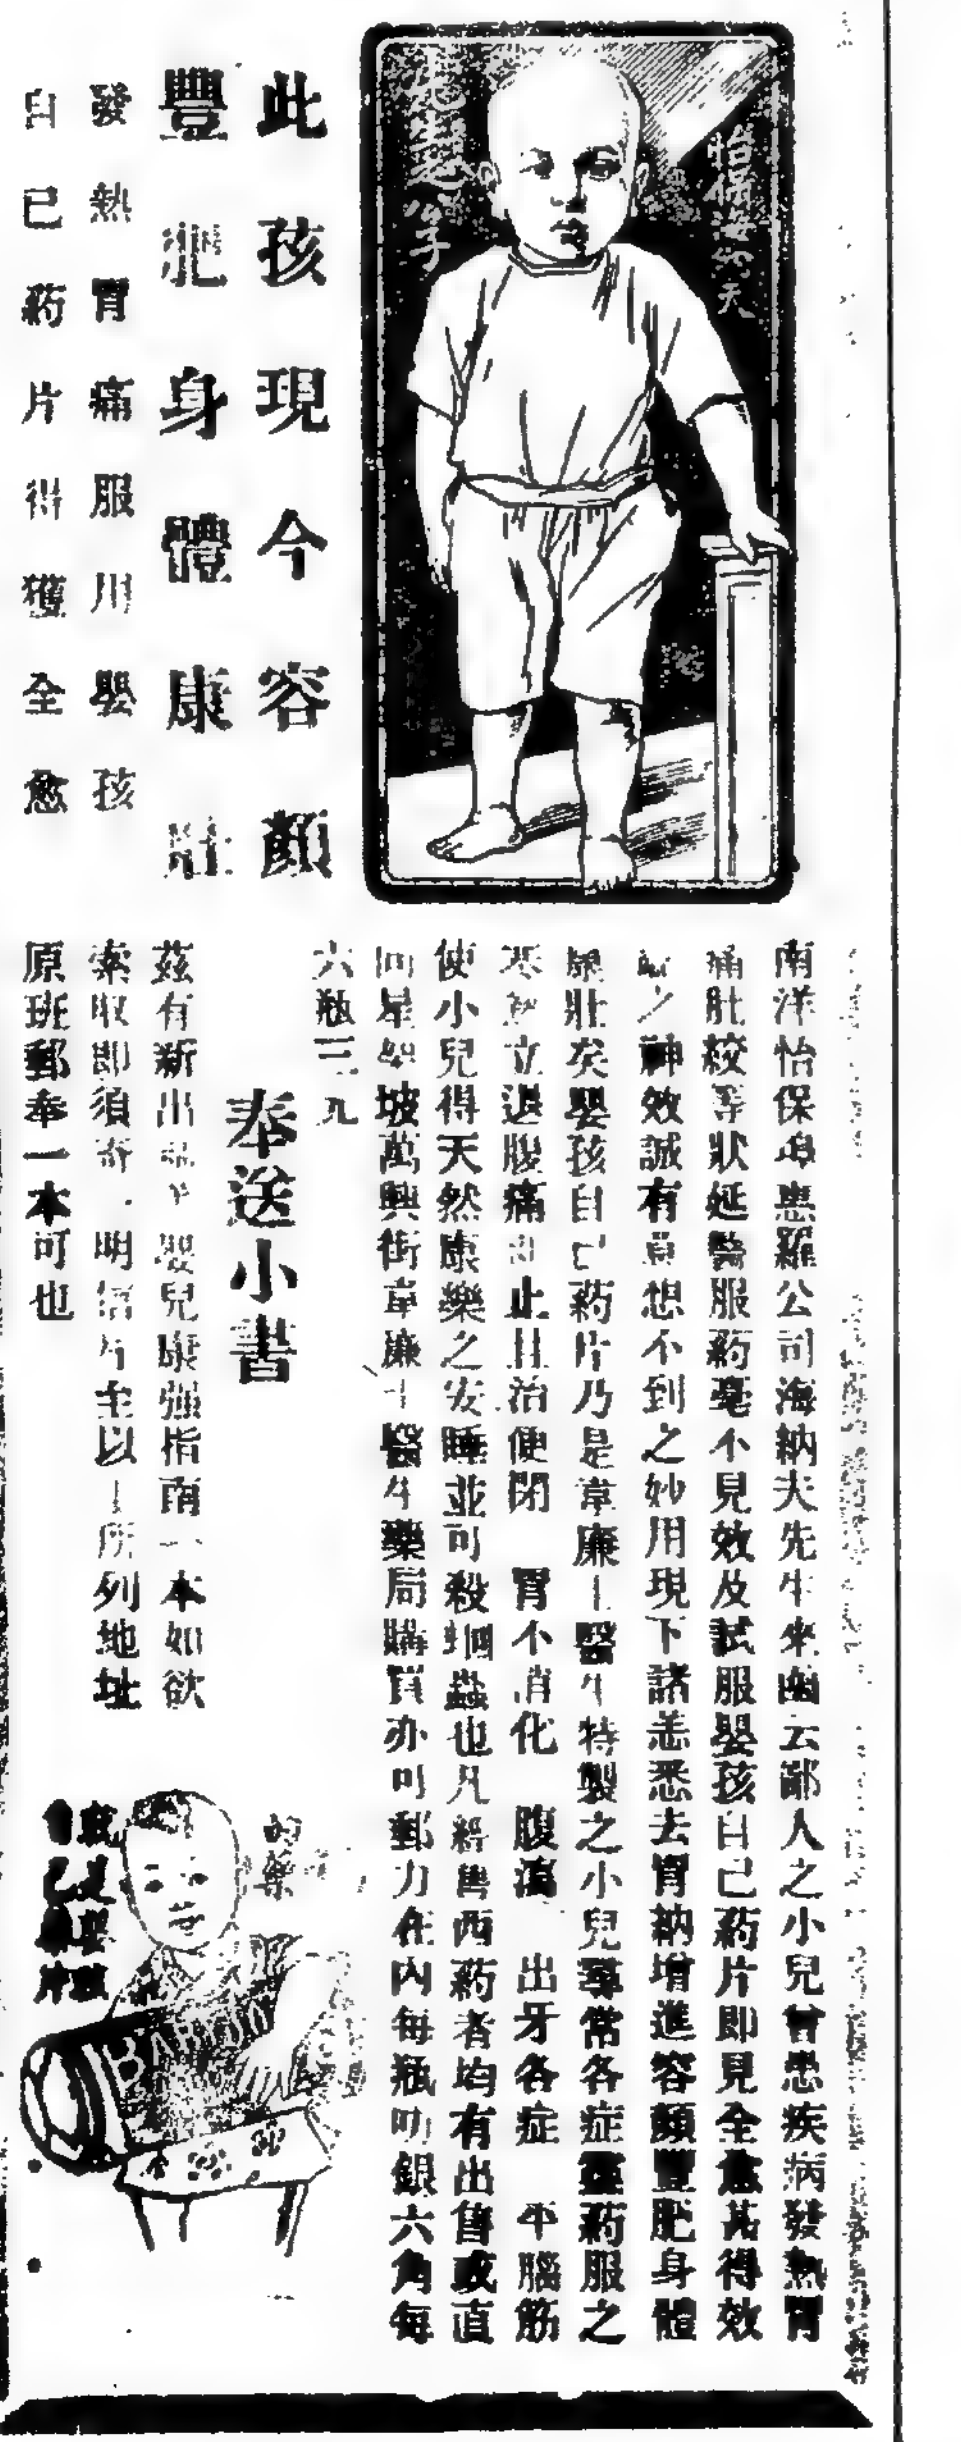 怡保海納夫
先生之公子
此孩現今容顏
豐肥身體康壯
發熱胃痛服用嬰孩
自己葯片得獲全愈
南洋怡保埠惠羅公司海納夫先生來函云鄙人之小兒曾患疾病發熱胃
痛肚絞等狀延醫服葯毫不見效及試服嬰孩自己葯片即見全愈其得效
之神效誠有意想不到之妙用現下諸恙悉去胃納增進容顏豐肥身體
康壯矣嬰孩自己葯片乃是韋廉士醫生特製之小兒尋常各症靈葯服之
寒熱立退腹痛即止且治便閉 胃不消化 腹瀉 出牙各症 平腦筋
使小兒得天然康樂之安睡並可殺蛔蟲也凡經售西葯者均有出售或直
向星加坡萬興街韋廉士醫生藥局購買亦可郵力在內每瓶叻銀六角每
六瓶三元
奉送小書
茲有新出嬰兒康强指南一本如欲
索取即須寄明信片至以上所列地址
原班郵奉一本可也
的藥
我是嬰孩
自己藥片
BABY